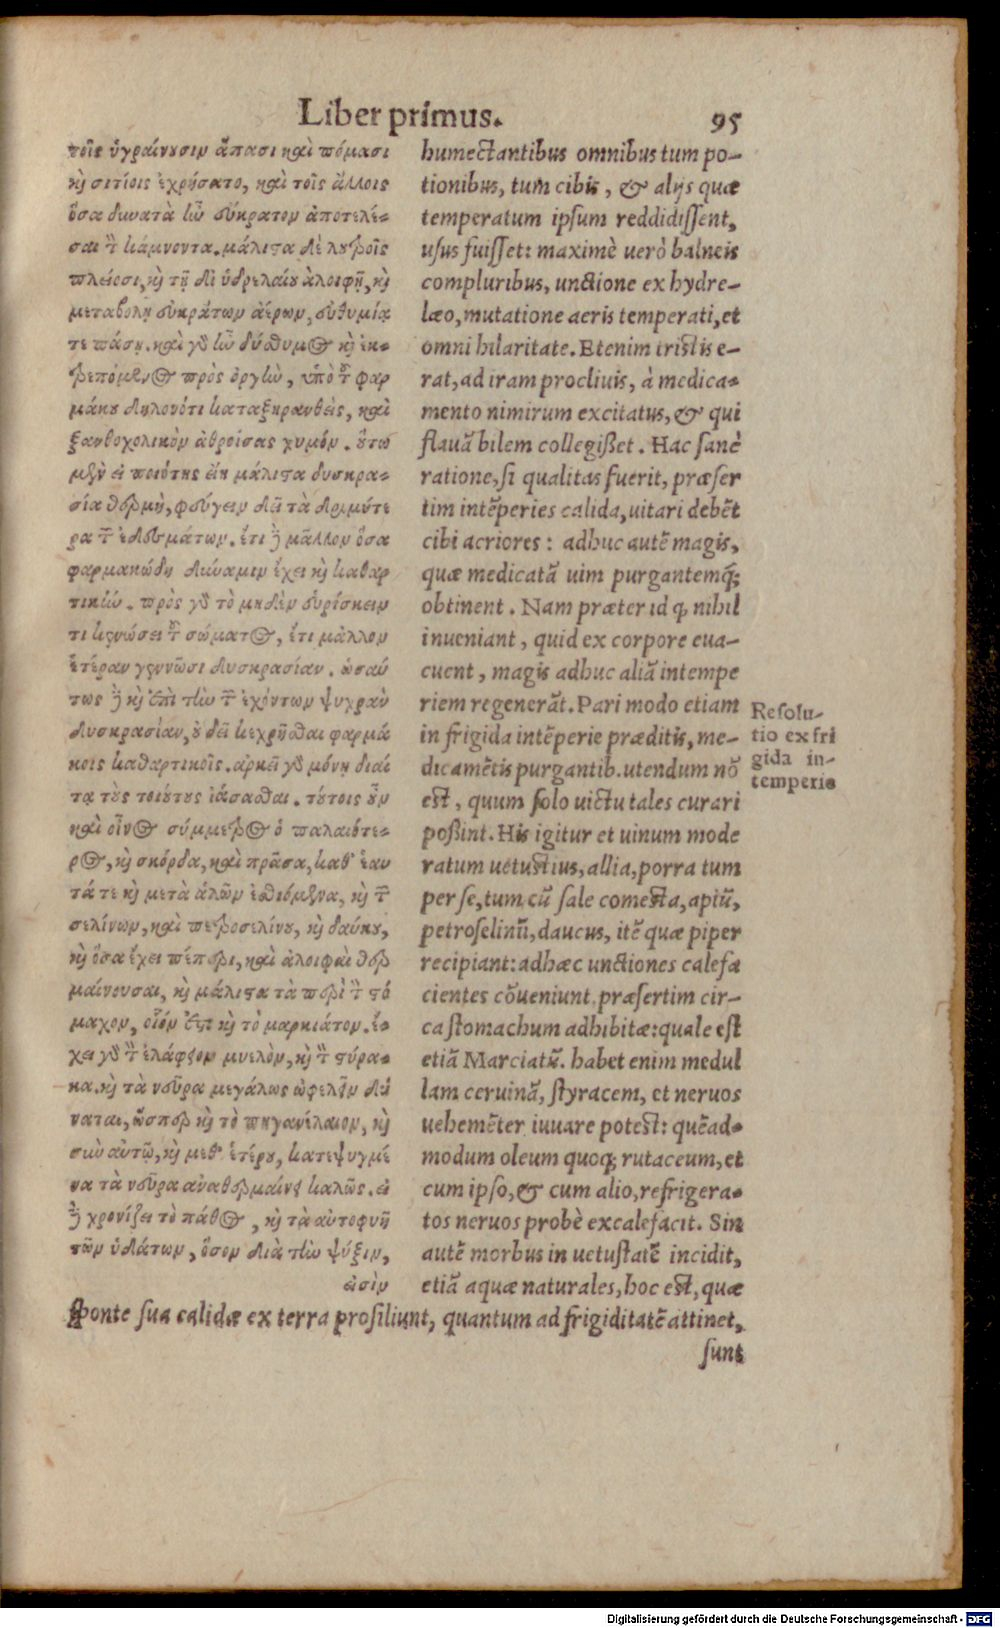 Liber primus. 95
τοῖς ὑγραίνουσιν ἅπασι καὶ πόμασι
καὶ σιτίοις ἐχρήσατο, καὶ τοῖς ἄλλοις
ὅσα δυνατὰ ἦν εὔκρατον ἀποτελέ-
σαι τὸν κάμνοντα. μάλιστα δὲ λουτροῖς
πλείοσι, καὶ τῇ δι' ὑδρελαίου ἀλοιφῇ, καὶ
μεταβολῇ εὐκράτων ἀέρων, εὐθυμίᾳ
τε πάσῃ. καὶ γὰρ ἦν δύσθυμος καὶ ἐκ-
τρεπόμενος πρὸς ὀργὴν, ὑπὸ τοῦ φαρ
μάκου δηλονότι καταξηρανθεὶς, καὶ
ξανθοχολικὸν ἀθροίσας χυμόν. οὕτω
μὲν εἰ ποιότης εἴη μάλιστα δυσκρα-
σία θερμὴ, φεύγειν δεῖ τὰ δριμύτε
ρα τῶν ἐδεσμάτων. ἔτι δὲ μᾶλλον ὅσα
φαρμακώδη δύναμιν ἔχει καὶ καθαρ
τικήν. πρὸς γὰρ τὸ μηδὲν εὑρίσκειν
τι κενώσει τοῦ σώματος, ἔτι μᾶλλον
ἑτέραν γεννῶσι δυσκρασίαν. ὡσαύ
τως δὲ καὶ ἐπὶ τὴν τῶν ἐχόντων ψυχρὰν
δυσκρασίαν, οὐ δεῖ κεχρῆσθαι φαρμά
κοις καθαρτικοῖς. ἀρκεῖ γὰρ μόνῃ διαί
τᾳ τοὺς τοιούτους ἰάσασθαι. τούτοις οὖν
καὶ οἶνος σύμμετρος ὁ παλαιότε-
ρος, καὶ σκόρδα, καὶ πρᾶσα, καθ' ἑαυ
τά τε καὶ μετὰ ἁλῶν ἐσθιόμενα, καὶ τῶν
σελίνων, καὶ πετροσελίνου, καὶ δαύκου,
καὶ ὅσα ἔχει πέπερι, καὶ ἀλοιφαὶ θερ
μαίνουσαι, καὶ μάλιστα τὰ περὶ τὸν στό
μαχον, οἷόν ἐστι καὶ τὸ μαρκιάτον. ἔ-
χει γὰρ τὸν ἐλάφειον μυελὸν, καὶ τὸν στύρα-
κα. καὶ τὰ νεῦρα μεγάλως ὠφελεῖν δύ
ναται, ὥσπερ καὶ τὸ πηγανέλαιον, καὶ
σὺν αὐτῷ, καὶ μεθ' ἑτέρου, κατεψυγμέ
να τὰ νεῦρα ἀναθερμαίνει καλῶς. εἰ
δὲ χρονίζει τὸ πάθος, καὶ τὰ αὐτοφυῆ
τῶν ὑδάτων, ὅσον διὰ τὴν ψύξιν,
εἰσὶν
humectantibus omnibus tum po-
tionibus, tum cibis, & alijs quæ
temperatum ipsum reddidissent,
usus fuisset: maximè uerò balneis
compluribus, unctione ex hydre-
læo, mutatione aeris temperati, et
omni hilaritate. Etenim tristis e-
rat, ad iram procliuis, à medica-
mento nimirum excitatus, & qui
flauã bilem collegißet. Hac sanè
ratione, si qualitas fuerit, præser
tim intẽperies calida, uitari debẽt
cibi acriores: adhuc autẽ magis,
quæ medicatã uim purgantemq́;
obtinent. Nam præter id q̃ nihil
inueniant, quid ex corpore eua-
cuent, magis adhuc aliã intempe
riem regenerãt. Pari modo etiam
in frigida intẽperie præditis, me-
dicamẽtis purgantib. utendum nõ
est, quum solo uictu tales curari
poßint. His igitur et uinum mode
ratum uetustius, allia, porra tum
per se, tum cũ sale comesta, apiũ,
petroselinũ, daucus, itẽ quæ piper
recipiant: adhæc unctiones calefa
cientes cõueniunt, præsertim cir-
ca stomachum adhibitæ: quale est
etiã Marciatũ. habet enim medul
lam ceruinã, styracem, et neruos
uehemẽter iuuare potest: quẽad-
modum oleum quoq; rutaceum, et
cum ipso, & cum alio, refrigera-
tos neruos probè excalefacit. Sin
autẽ morbus in uetustatẽ incidit,
etiã aquæ naturales, hoc est, quæ
Resolu-
tio ex fri
gida in-
temperie
sponte sua calidæ ex terra prosiliunt, quantum ad frigiditatẽ attinet,
sunt
Digitalisierung gefördert durch die Deutsche Forschungsgemeinschaft - DFG